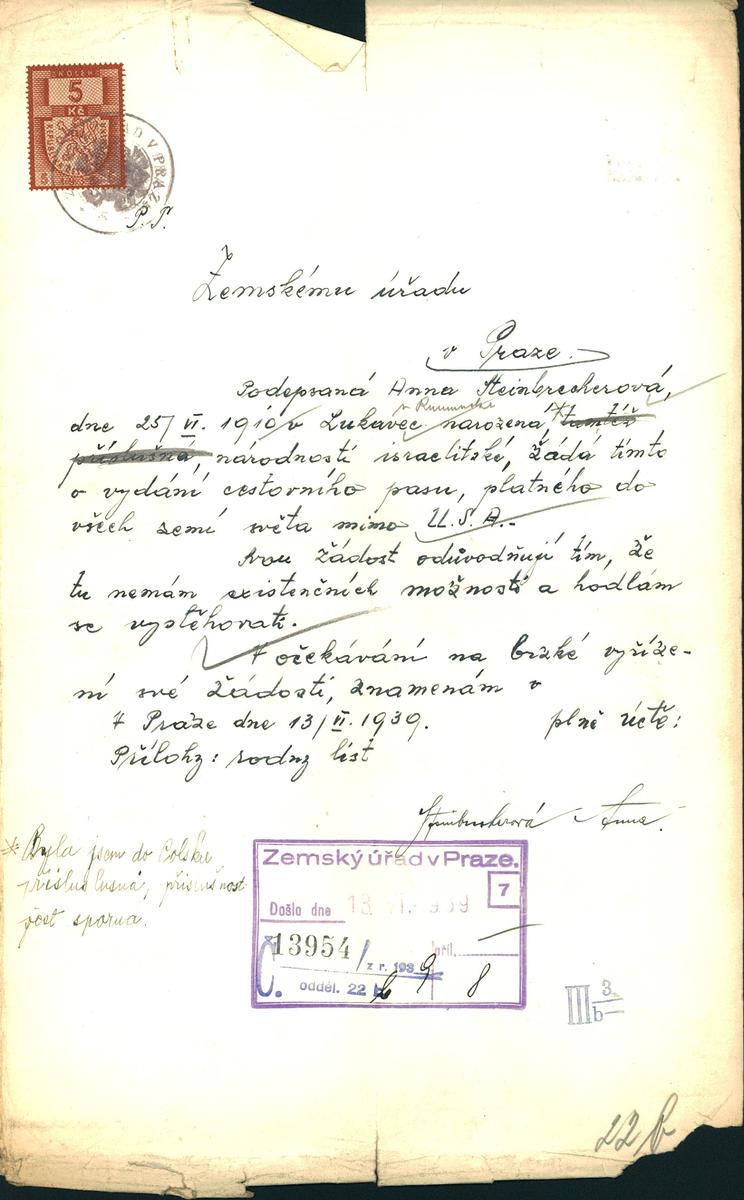 5
Kč
P.T.
Zemskému úřadu
v Praze.
Podepsaná Anna Steinbrecherová,
v Rumunsku
dne 25/VI. 1910 v Lukavec narozená * tamtéž
příslušná, národnosti israelitské, žádá tímto
o vydání cestovního pasu, platného do
všech zemí světa mimo U.S.A.-
Svou žádost odůvodňuji tím, že
tu nemám existenčních možností a hodlám
se vystěhovati.
V očekávání na brzké vyříze-
ní své žádosti, znamenám v
V Praze dne 13/VI. 1939. plné úctě:
Přílohy: rodný list
Steinbrecherová Anna.
* Byla jsem do Polska
příslušná, příslušnost
jest sporna.
Zemský úřad v Praze.
7
Došlo dne 13. VI. 1939
Č. 13954/ z r. 193 9 příl. —
odděl. 22 b 8
III 3
b
22 b